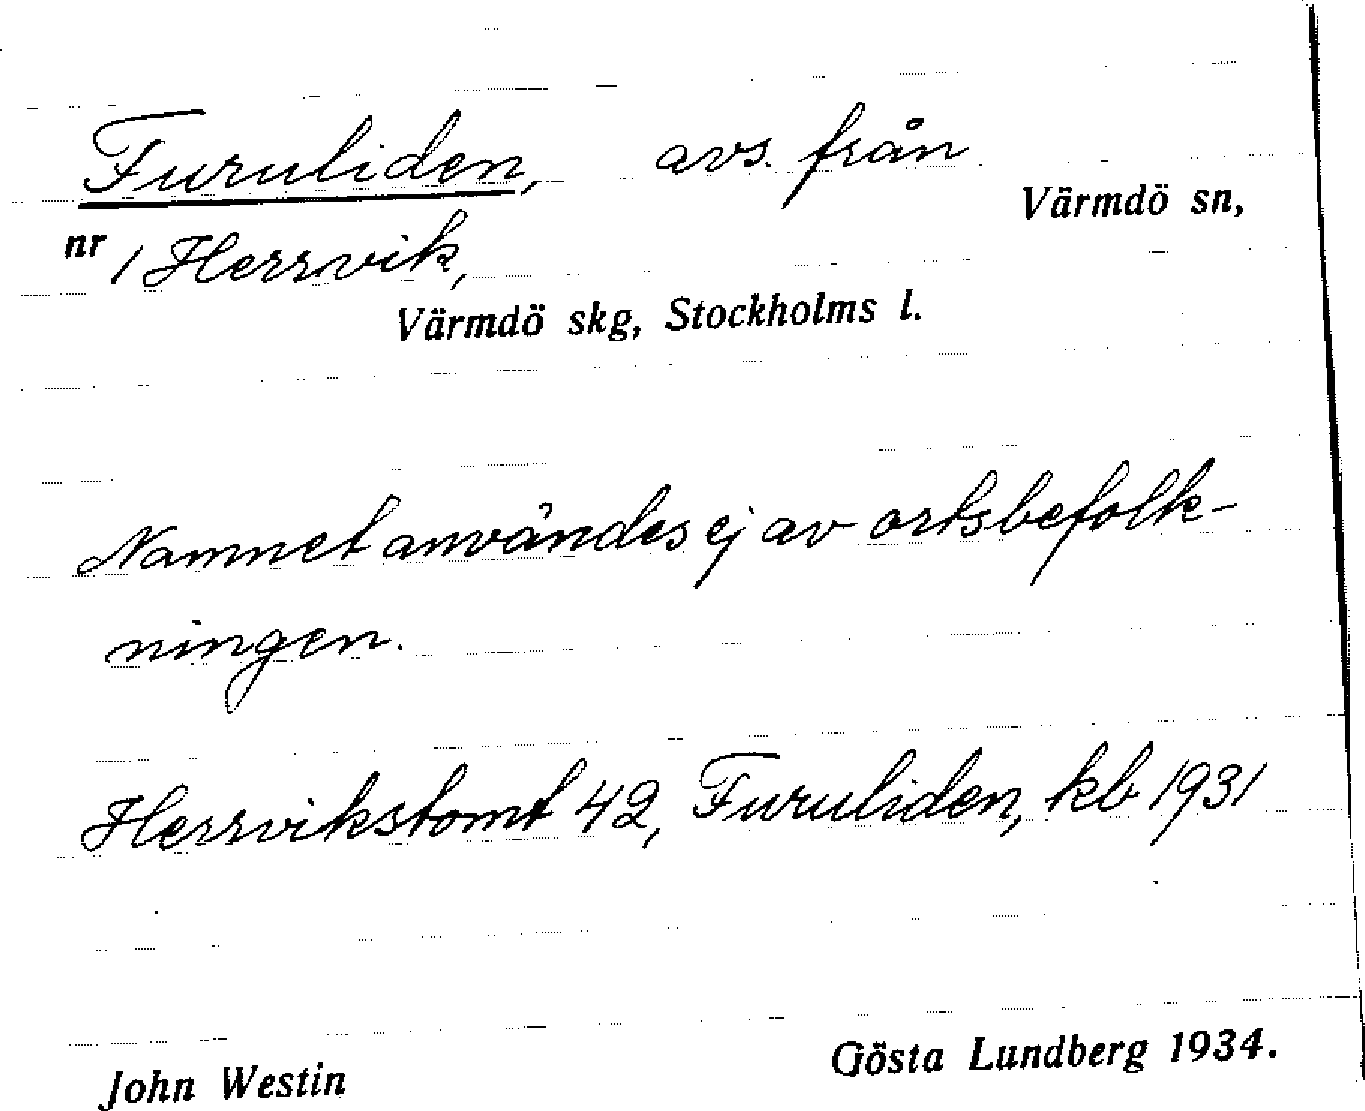 Furuliden, avs. från
Värmdö sn,
nr 1 Herrvik,
Värmdö skg, Stockholms l.
Namnet användes ej av ortsbefolk-
ningen.
Herrvikstomt 42, Furuliden, kb 1931
John Westin
Gösta Lundberg 1934.